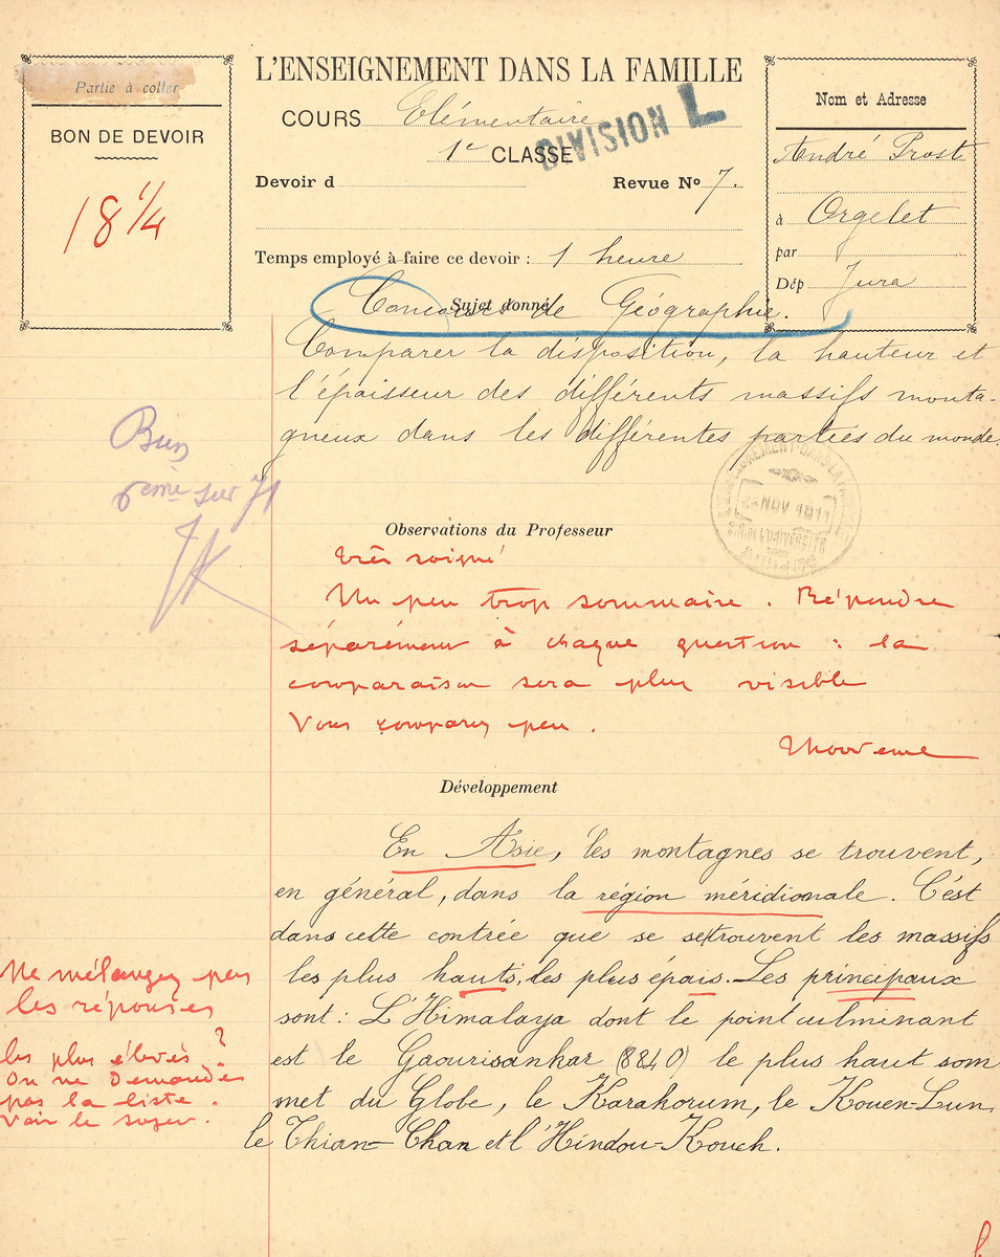 Partie à coller
BON DE DEVOIR
18 1/4
L'ENSEIGNEMENT DANS LA FAMILLE
COURS Elémentaire
1e CLASSE
DIVISION L
Devoir d
Revue No 7.
Temps employé à faire ce devoir : 1 heure
Nom et Adresse
André Prost
à Orgelet
par
Dép Jura
Sujet donné
Concours de Géographie.
Comparer la disposition, la hauteur et
l'épaisseur des différents massifs monta-
gneux dans les différentes parties du monde.
Bien
6ème sur 71
NOV 1911
Observations du Professeur
très soigné
Un peu trop sommaire. Répondre
séparément à chaque question : la
comparaison sera plus visible
Vous comparez peu.
Développement
En Asie, les montagnes se trouvent,
en général, dans la région méridionale. C'est
dans cette contrée que se se trouvent les massifs
les plus hauts, les plus épais. Les principaux
sont : L'Himalaya dont le point culminant
est le Gaourisankar (8840) le plus haut som
met du Globe, le Karakorum, le Kouen-Lun,
le Thian-Chan et l'Hindou-Kouch.
Ne mélangez pas
les réponses
les plus élevés ?
On ne demande
pas la liste.
Voir le sujet.